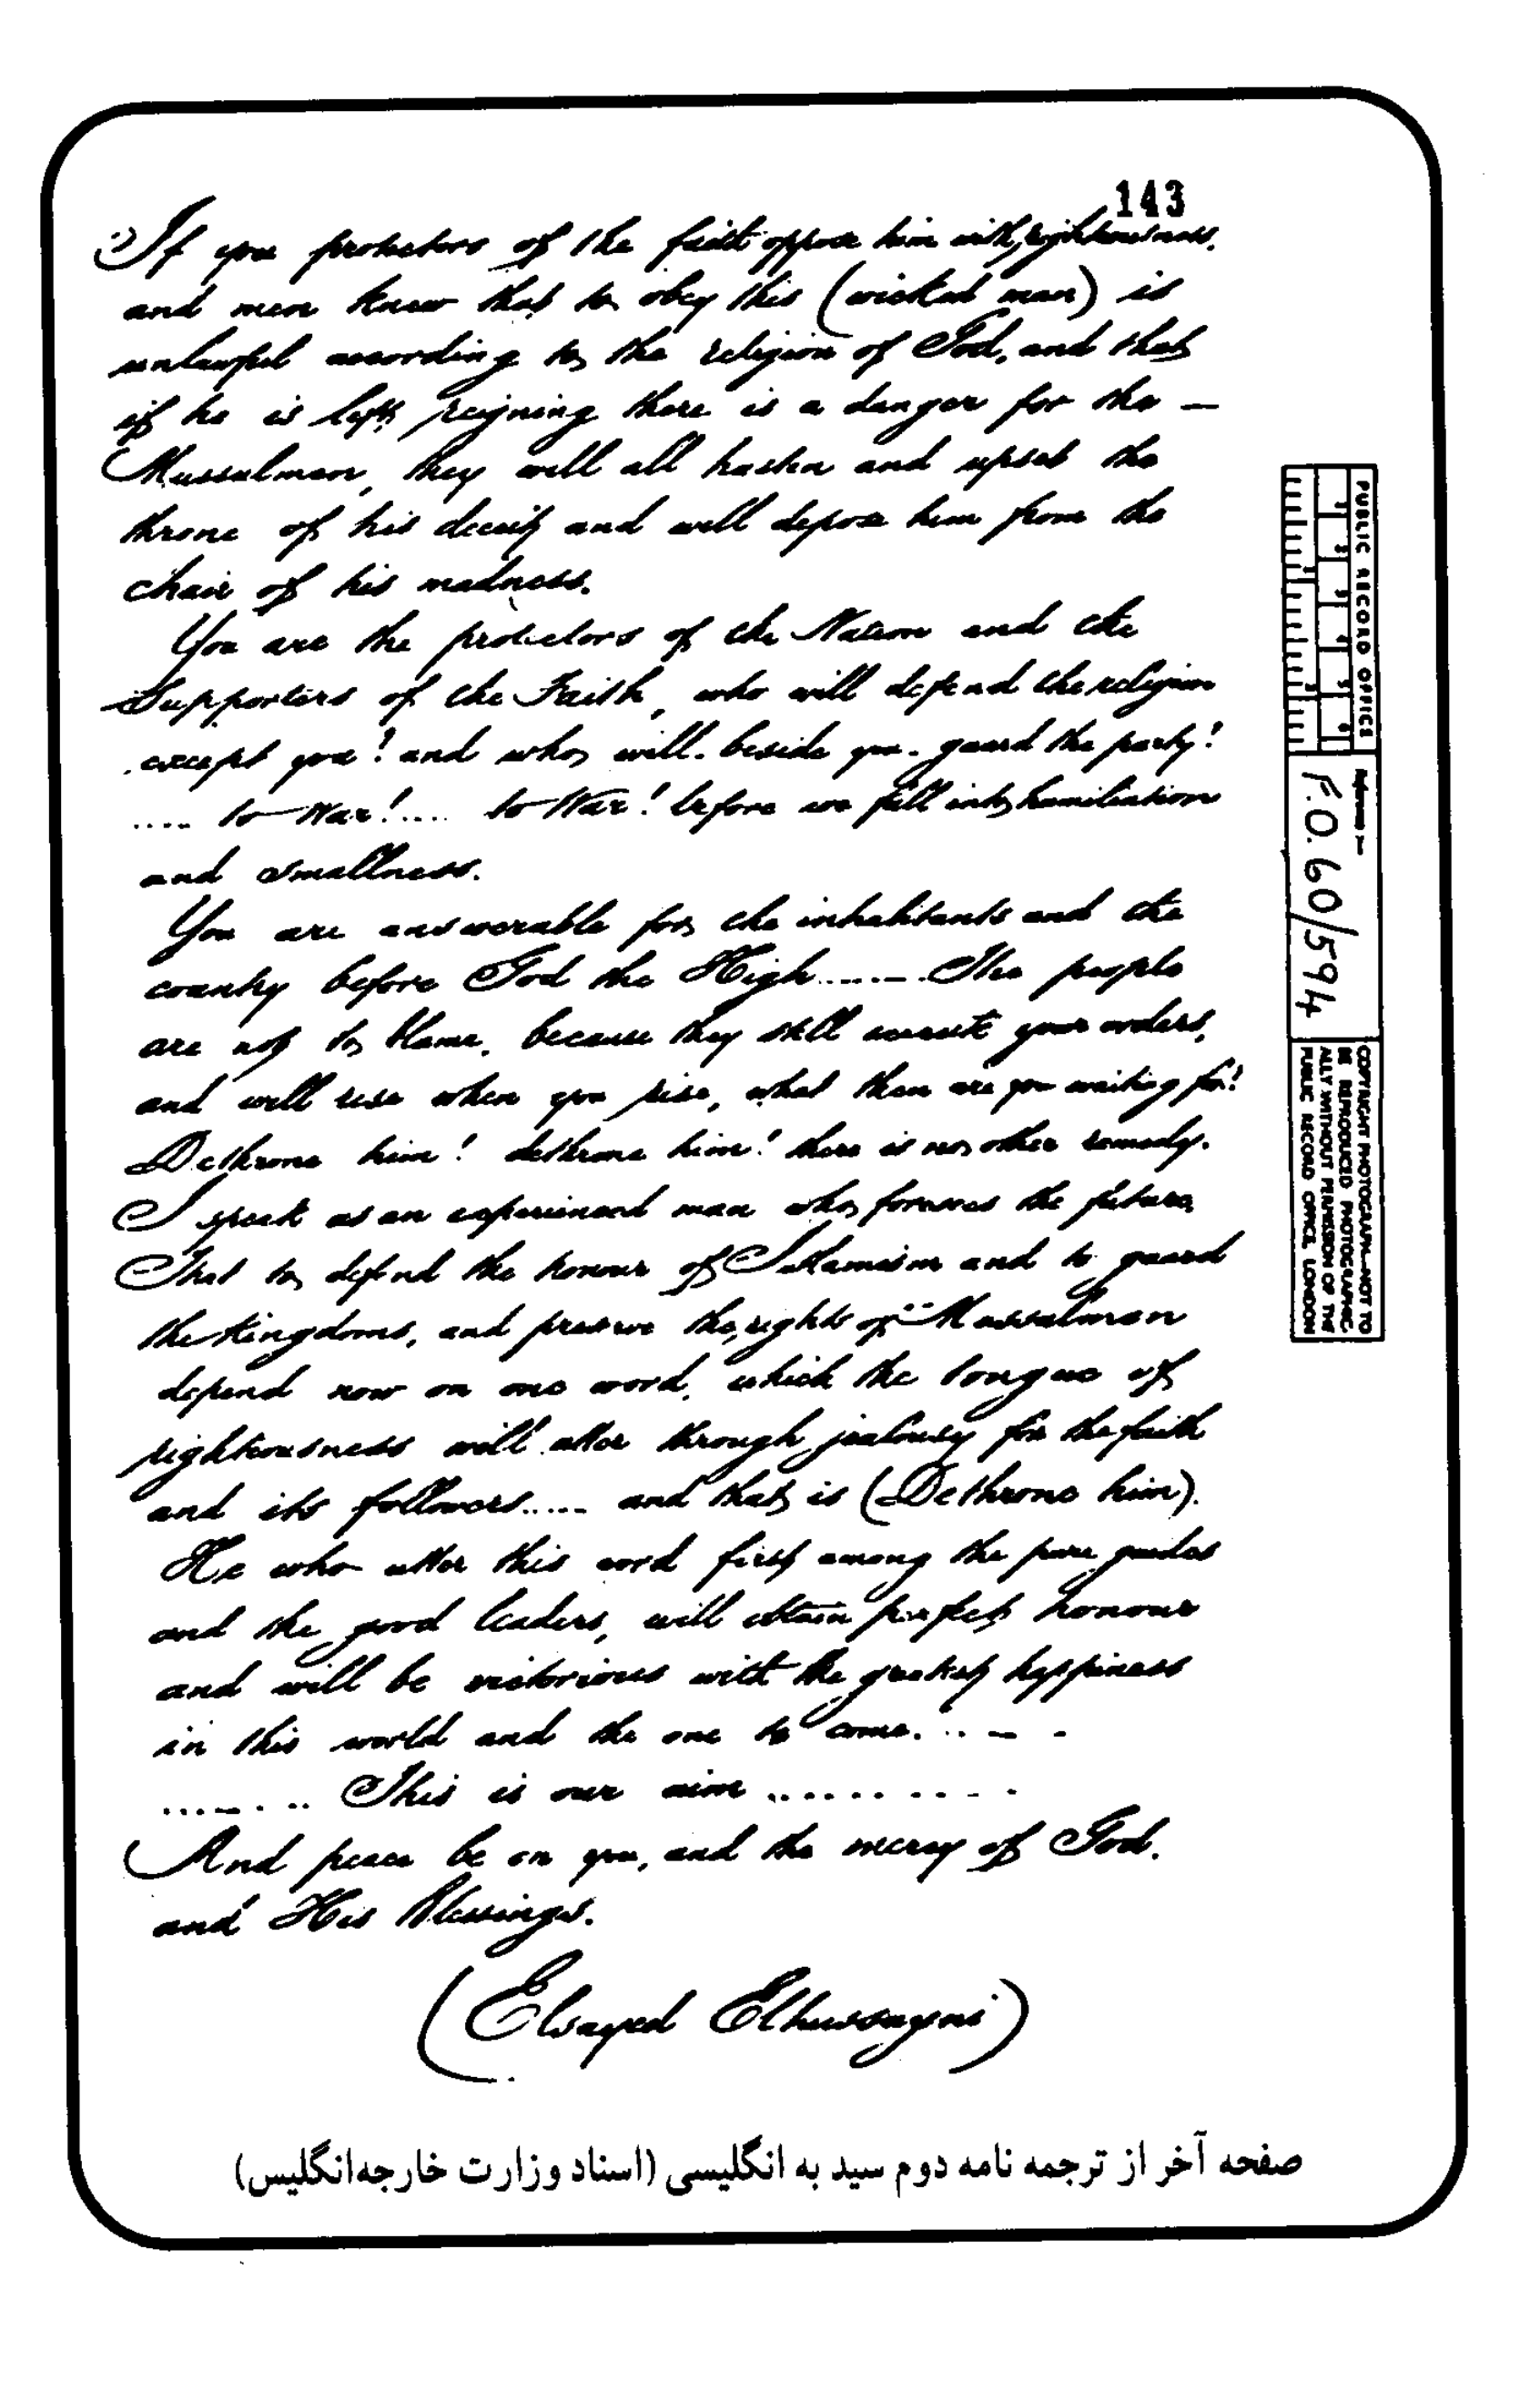 143
If you protectors of the faith oppose him with righteousness,
and men know that to obey this (wicked man) is
unlawful according to the religion of God, and that
if he is left reigning there is a danger for the —
Mussulman, they will all hasten and upset the
throne of his deceit and will depose him from the
chair of his madness.
You are the protectors of the Nation and the
Supporters of the Faith, who will defend the religion
except you! and who will. beside you. guard the party!
.... to War!.... to War! before we fall into humiliation
and smallness.
You are answerable for the inhabitants and the
country before God the High....... The people
are not to blame, because they still execute your orders,
and will rise when you rise, what then are you waiting for!
Dethrone him! dethrone him! there is no other remedy.
I speak as an experienced man who foresees the future,
That to defend the honour of Islamism and to guard
the Kingdoms, and preserve the rights of Mussulman
depend now on one word, which the tongue of
righteousness will utter through jealousy for the faith
and its followers..... and that is (Dethrone him).
He who utter this word first among the pure guides
and the good leaders, will obtain perfect honour
and will be victorious with the greatest happiness
in this world and the one to come. .. - -
........ This is our aim ..........
And peace be on you, and the mercy of God.
and His Blessings.
(Elsayed Elhussayni)
PUBLIC RECORD OFFICE
1 2 3 4 5 6
1 2
Reference :—
F.O. 60/594
COPYRIGHT PHOTOGRAPH—NOT TO
BE REPRODUCED PHOTOGRAPHIC-
ALLY WITHOUT PERMISSION OF THE
PUBLIC RECORD OFFICE, LONDON
صفحه آخر از ترجمه نامه دوم سید به انگلیسی (اسناد وزارت خارجه‌انگلیس)